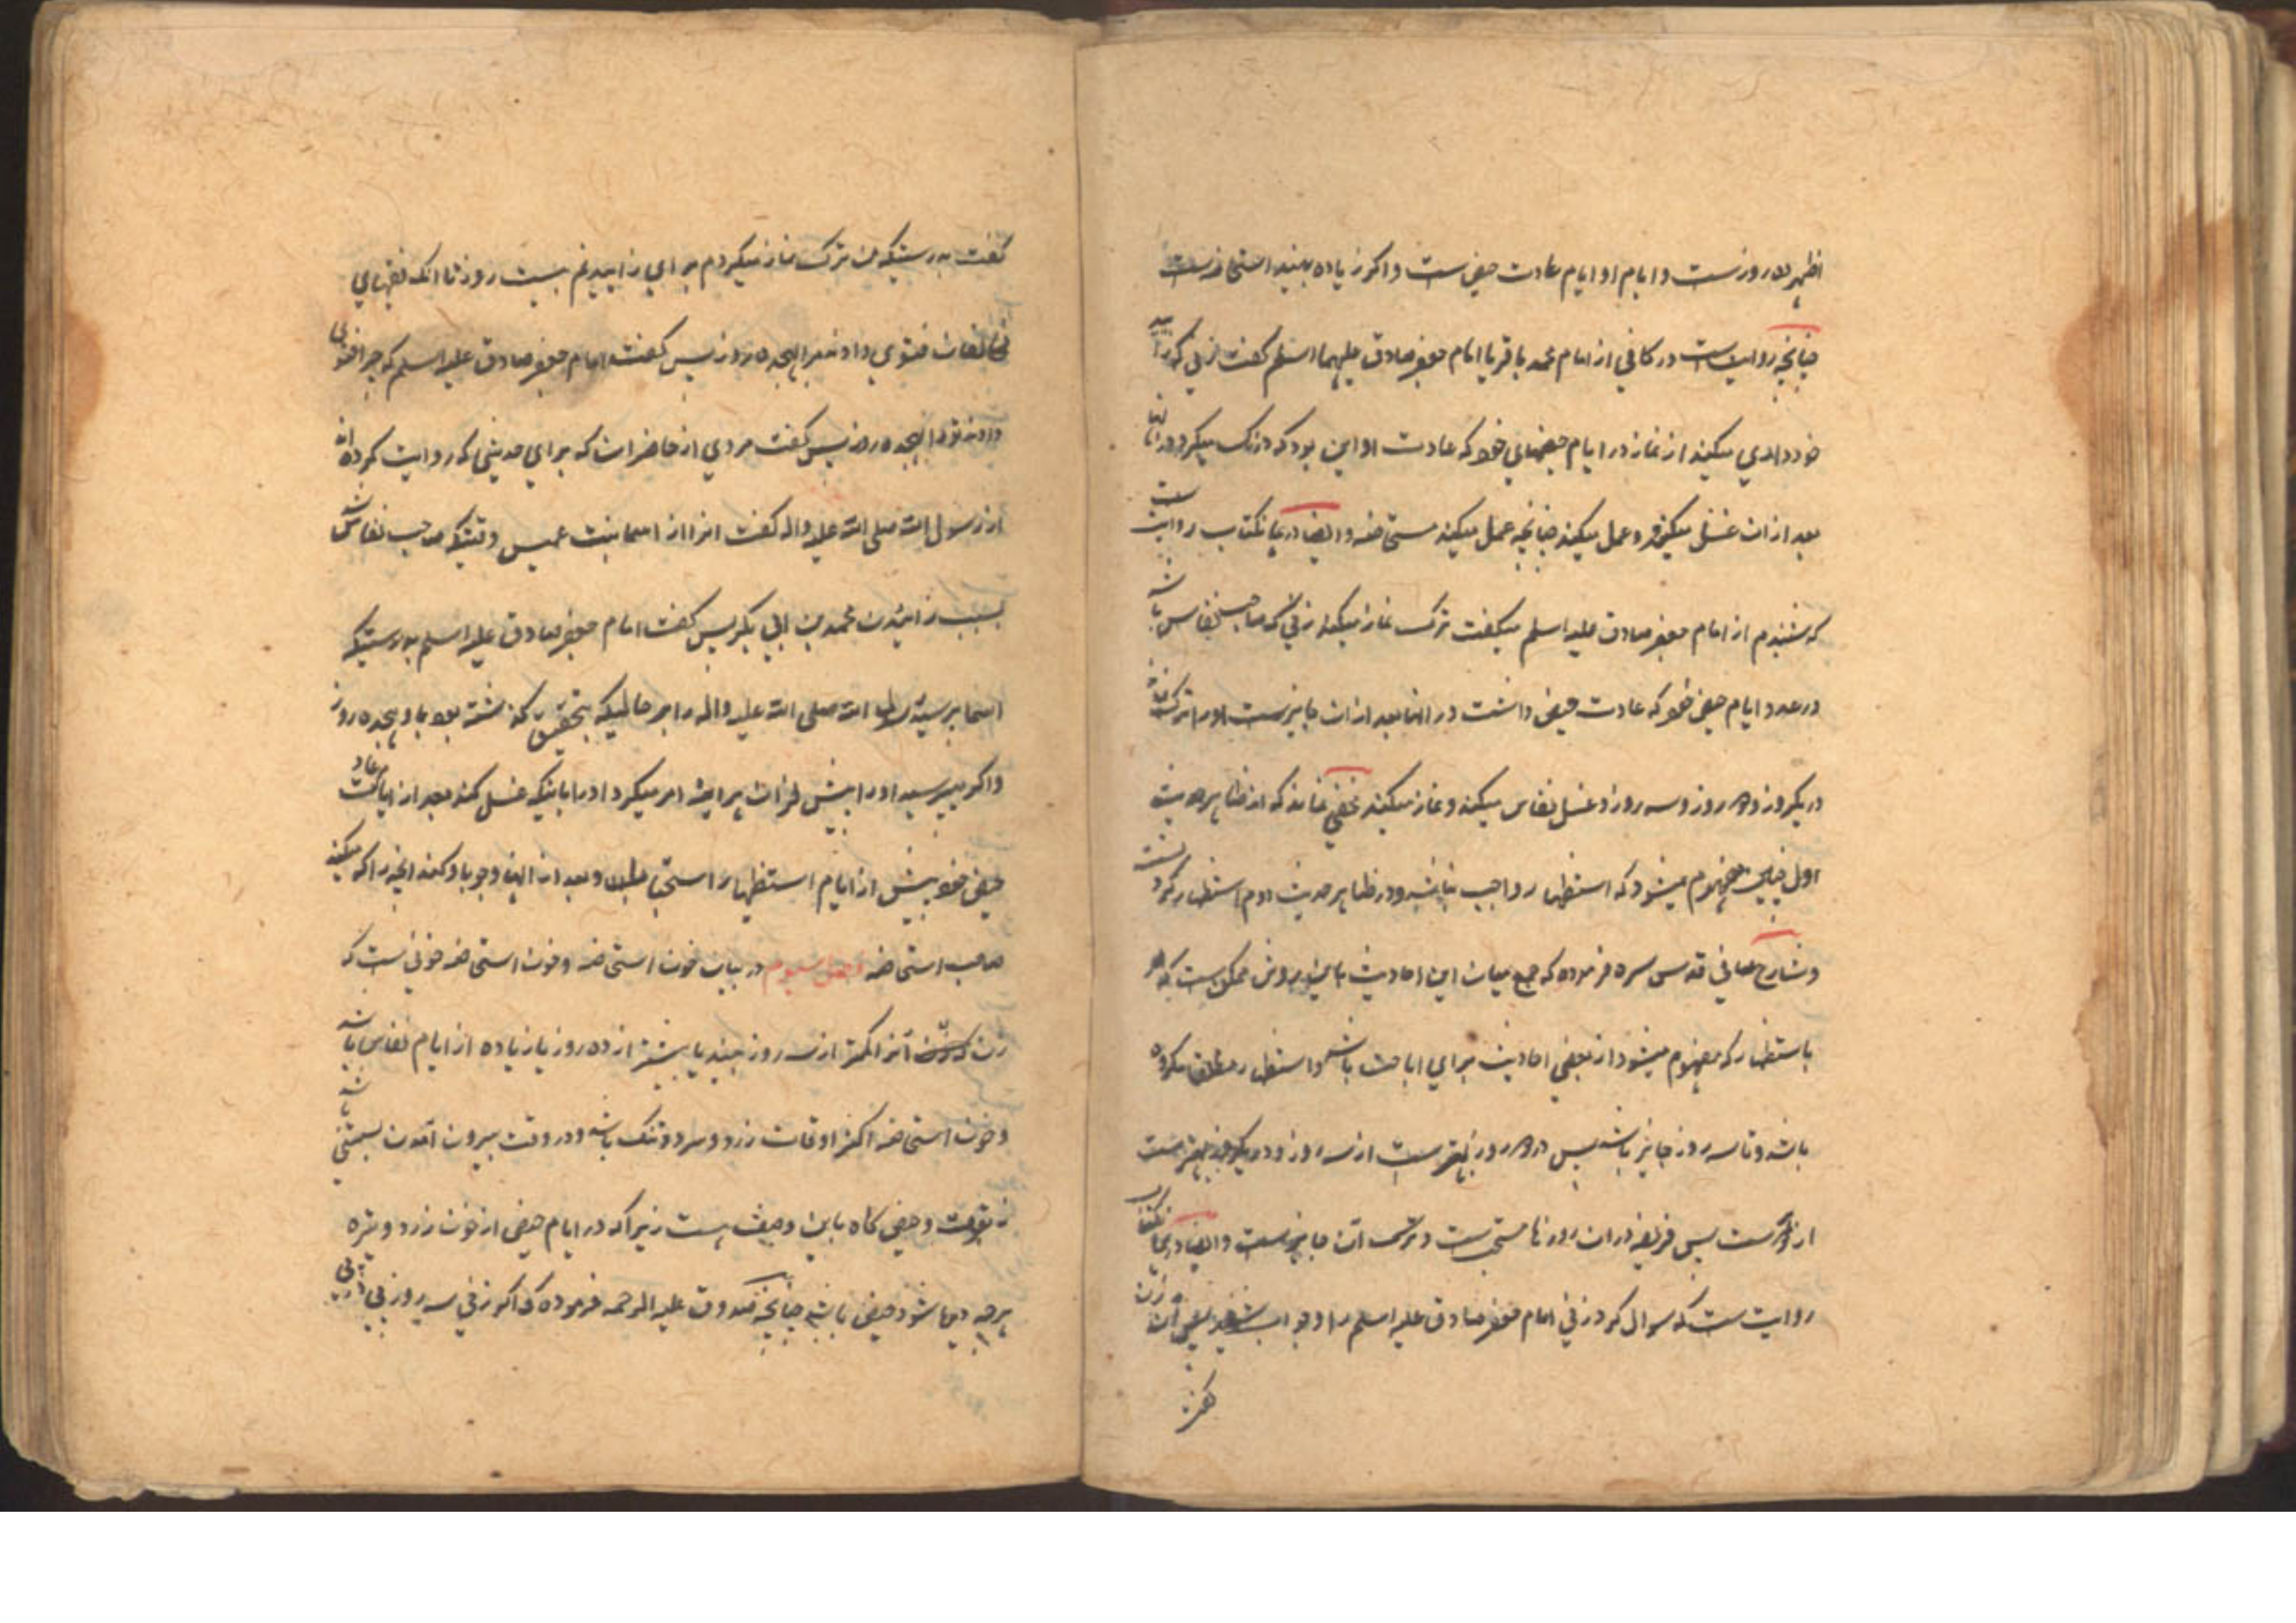 اظهر ده روزست و ایام او ایام عادت حیض ست و اکر زیاده بیند استحاضه ست
چنانچه روایت ست در کافی از امام محمد باقر یا امام جعفر صادق علیهما السلم کفت زنی که زاید
خود داری میکند از نماز در ایام حیضهای خود که عادت او این بود که درنک میکرد در انها
بعد از ان غسل میکند و عمل میکند چنانچه عمل میکند مستحاضه و ایضا در همانکتاب روایت ست
که شنیدم از امام جعفر صادق علیه السلم میکفت ترک نماز میکند زنی که صاحب نفاس باشد
در عدد ایام حیض خود که عادت حیض داشت در انها بعد از ان جایزست او را ترک نماز
در یکروز و دو روز و سه روز و غسل نفاس میکند و نماز میکند مخفی نماند که از ظاهر حدیث
اول چنین مفهوم میشود که استظهار واجب نباشد و در ظاهر حدیث دوم استظهار
و شارح ثانی قدس سره فرموده که جمع میان این احادیث باین روش ممکن ست که امر
باستظهار که مفهوم میشود از بعضی احادیث برای اباحت باشد و استظهار مطلق مکروه
باشد و تا سه روز جایز باشد پس در دو روز بهترست از سه روز و در یکروز بهترست
از دو پس قریضه در ان روزها مستحب ست و ترک ان جایزست و ایضا در همانکتاب
روایت ست که سوال کرد زنی امام جعفر صادق علیه السلم را و جواب شنید یعنی آن زن
کفت
کفت بدرستیکه من ترک نماز میکردم برای زاییدنم بیست روز تا انک فقهای
مخالفان فتوی دادند مرا بهجده روز پس کفت امام جعفر صادق علیه السلم که چرا فتوی
دادند ترا بهجده روز پس کفت مردی از حاضران که برای حدیثی که روایت کرده اند
از رسول الله صلی الله علیه واله کفت انرا از اسما بنت عمیس وقتیکه صاحب نفاس شد
بسبب زاییدن محمد بن ابی بکر پس کفت امام جعفر صادق علیه السلم بدرستیکه
اسما پرسید رسول الله صلی الله علیه واله را در حالیکه بتحقیق که کذشته بود باو هجده روز
و اکر میپرسید او را پیش از ان هر اینه امر میکرد او را باینکه غسل کند بعد از ایام عادت
حیض خود پیش از ایام استظهار استحبابا و بعد از انها وجوبا و کند انچه را که میکند
صاحب استحاضه فصل سیوم در بیان خون استحاضه و خون استحاضه خونی ست که
زن آنرا کمتر از سه روز بیند یا بیشتر از ده روز یا زیاده از ایام نفاس باشد
و خون استحاضه اکثر اوقات زرد و سرد و تنک باشد و در وقت بیرون آمدن بسستی باشد
نه بقوت و حیض کاه باین وصف هست زیرا که در ایام حیض از خون زرد و تیره
هرچه دیده شود حیض باشد چنانچه صدوق علیه الرحمه فرموده که اکر زنی سه روز پی در پی